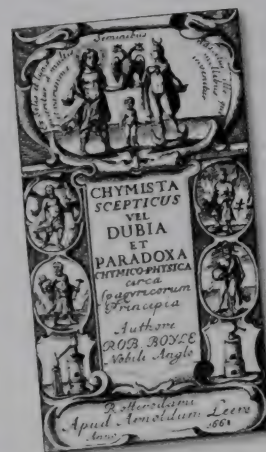 Seminibus
CHYMISTA
SCEPTICUS
VEL
DUBIA
ET
PARADOXA
CHYMICO-PHYSICA
circa
Spagyricorum
Principia
Authore
ROB. BOYLE
Nobili Anglo
Rotterodami
Apud Arnoldum Leers
Anno 1661